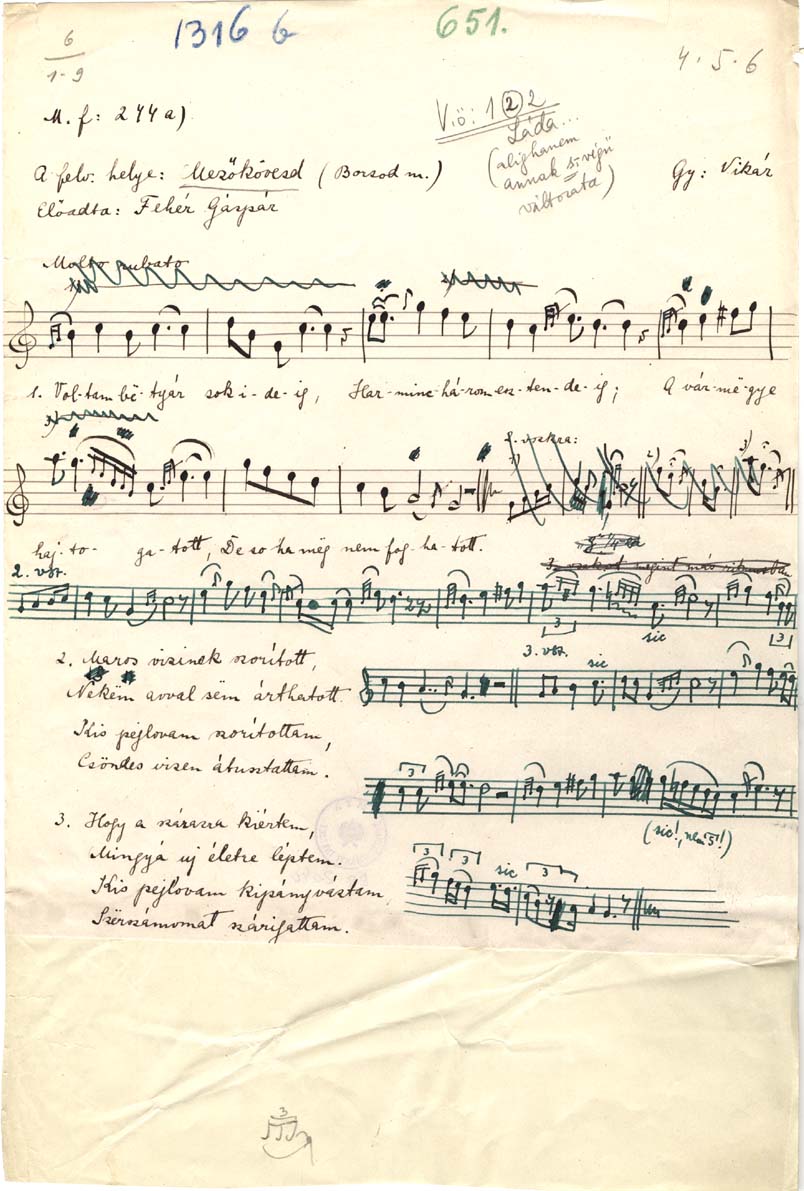 6
1-9
1316 b
651.
4.5.6
M. f: 244 a)
V.ö: 1 2 2
Láda...
(alighanem
annak végű
változata)
A felv. helye: Mezőkövesd (Borsod m.)
Gy: Vikár
Előadta: Fehér Gáspár
Molto rubato
1. Vol-tam bë-tyár sok i-de-ig, Har-minc-há-rom esz-ten-de-ig; A vár-më-gye
2. vszkra:
1)
2)
3)
haj-to- ga-tott, De so-ha mëg nem fog-ha-tott.
3. szakasz megint más ritmusban
2. vsz.
3
sic
3
2. Maros vizinek szorított,
Nekëm avval sëm árthatott.
Kis pejlovam szorítottam,
Csöndes vizen átusztattam.
3. vsz.
sic
3
(sic!, nem 5!)
3. Hogy a szárazra kiértem,
Mingyá uj életre léptem.
Kis pejlovam kipányváztam,
Szërszámomat szárigattam.
3
3
sic
3
3